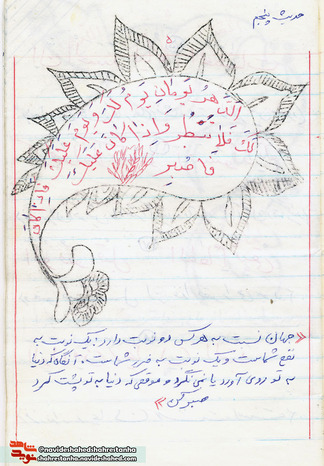 حدیث پنجم
۵
الدَّهر یَومانِ یَومُ لَکَ وَ یَومُ عَلَیکَ فَاِذا کانَ
لَکَ فَلا تَبطَر وَ اِذا کانَ عَلَیکَ
فَاصبِر
«جهان نسبت به هر کس دو نوبت دارد: یک نوبت به
نفع شماست و یک نوبت به ضرر شماست، آنگاه که دنیا
به تو روی آورد یاغی نگرد و موقعی که دنیا به تو پشت کرد
صبر کن»
شاهد
نوید
@navideshahedshahrestanha
shahrestanha.navideshahed.com